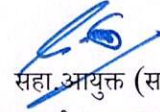 सहा.आयुक्त (स